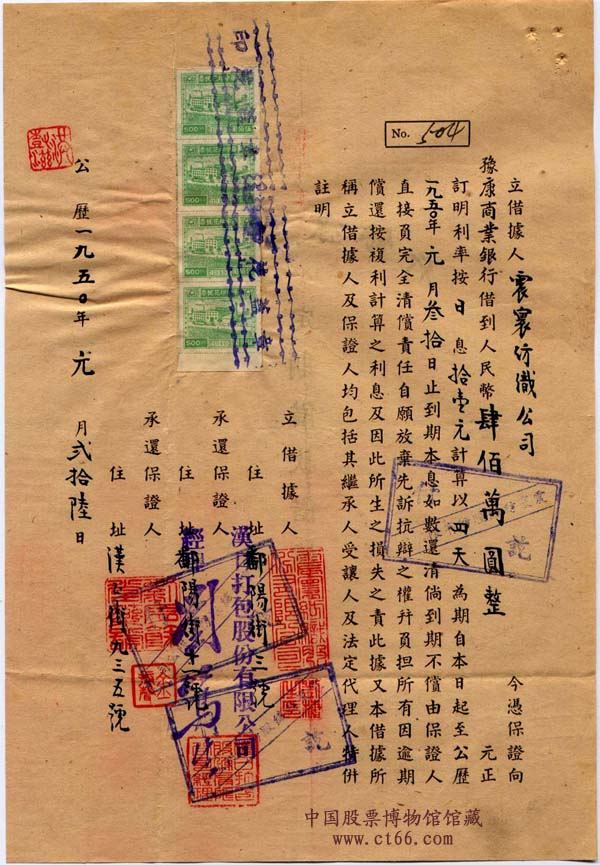 No. 504
立借據人 震寰紡織公司 今憑保證向
豫康商業銀行借到人民幣 肆佰萬圓整 元正
訂明利率按日息拾壹元計算以四天為期自本日起至公歷
一九五〇年元月叁拾日止到期本息如數還清倘到期不償由保證人
直接負完全清償責任自願放棄先訴抗辯之權幷負担所有因逾期
償還按複利計算之利息及因此所生之損失之責此據又本借據所
稱立借據人及保證人均包括其繼承人受讓人及法定代理人特併
註明
立借據人
住址 鄱陽街三號
漢口打包股份有限公司
承還保證人
經理
住址 鄱陽街
承還保證人
住址 漢正街九三五號
公歷一九五〇年元月弍拾陸日
500
500
500
500
中国股票博物馆馆藏
www.ct66.com